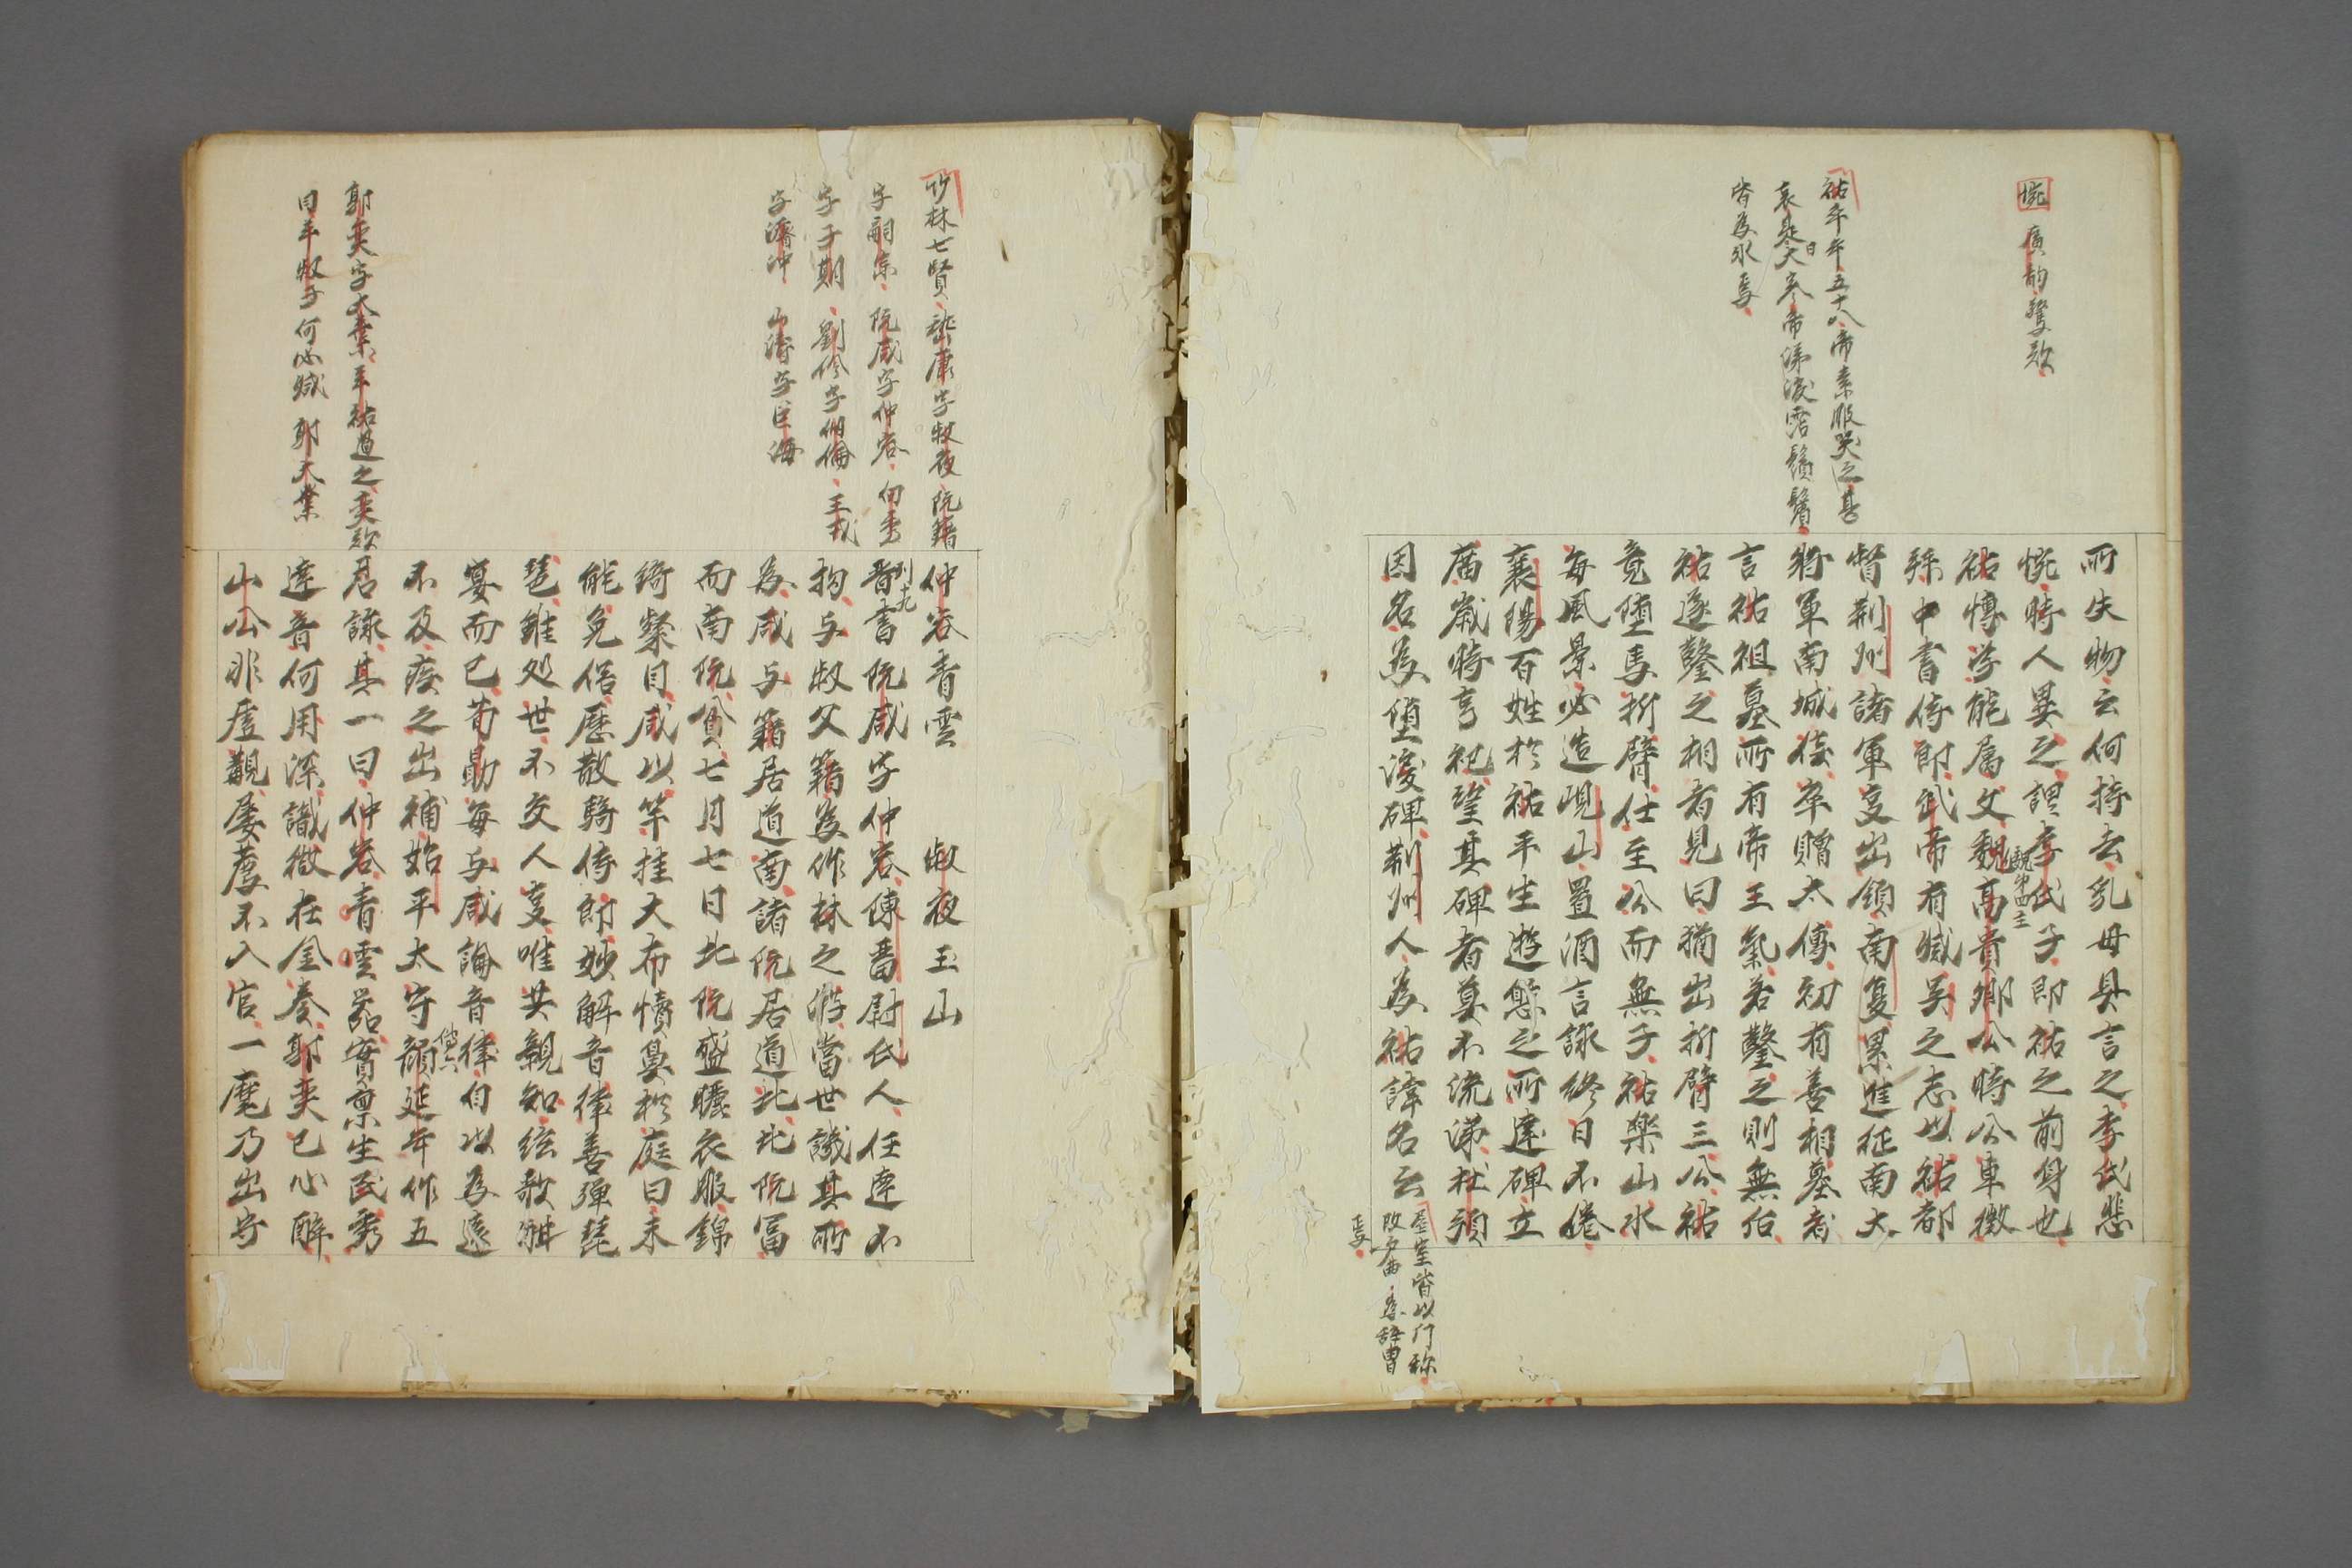 惋 廣韵驚歎
祜卒年五十八帝素服哭之甚
哀是日大寒帝涕淚霑鬚鬢
皆為氷焉
所失物云何持去乳母具言之李氏悲
惋時人異之謂李氏子即祜之前身也
祜愽学能属文魏高貴郷公時公車徴
魏第四主
拜中書侍郎武帝有滅吴之志以祜都
督荆州諸軍事出鎮南夏累進征南大
將軍南城侯卒贈太傅初有善相墓者
言祜祖墓所有帝王氣若鑿之則無後
祜遂鑿之相者見曰猶出折臂三公祜
竟堕馬折臂仕至公而無子祜樂山水
每風景必造峴山置酒言詠終日不倦
襄陽百姓於祜平生遊憇之所建碑立
廟歳時享祀望其碑者莫不流涕杜預
因名為堕淚碑荆州人為祜諱名云
屋室皆以門称
改户曹為辞曹
焉
竹林七賢嵆康字叔夜阮籍
字嗣宗阮咸字仲容向秀
字子期劉伶字伯倫王戎
字濬沖山濤字巨源
郭奕字太業羊祜過之奕歎
曰羊叔子何必減郭太業
仲容青雲 叔夜玉山
列十九
晋書阮咸字仲容陳畱尉氏人任達不
拘与叔父籍為竹林之游當世譏其所
為咸与籍居道南諸阮居道北北阮冨
而南阮貧七月七日北阮盛曬衣服錦
綺粲目咸以竿挂大布犢鼻於庭曰未
能免俗歴散騎侍郎妙解音律善弾琵
琶雖処世不交人事唯共親知絃歌酣
宴而已荀勗每与咸論音律自以為遠
不及疾之出補始平太守顔延年作五
君詠其一曰仲容青雲器實禀生民秀
達音何用深識微在金奏郭奕已心醉
山公非虚覯屡薦不入官一麾乃出守